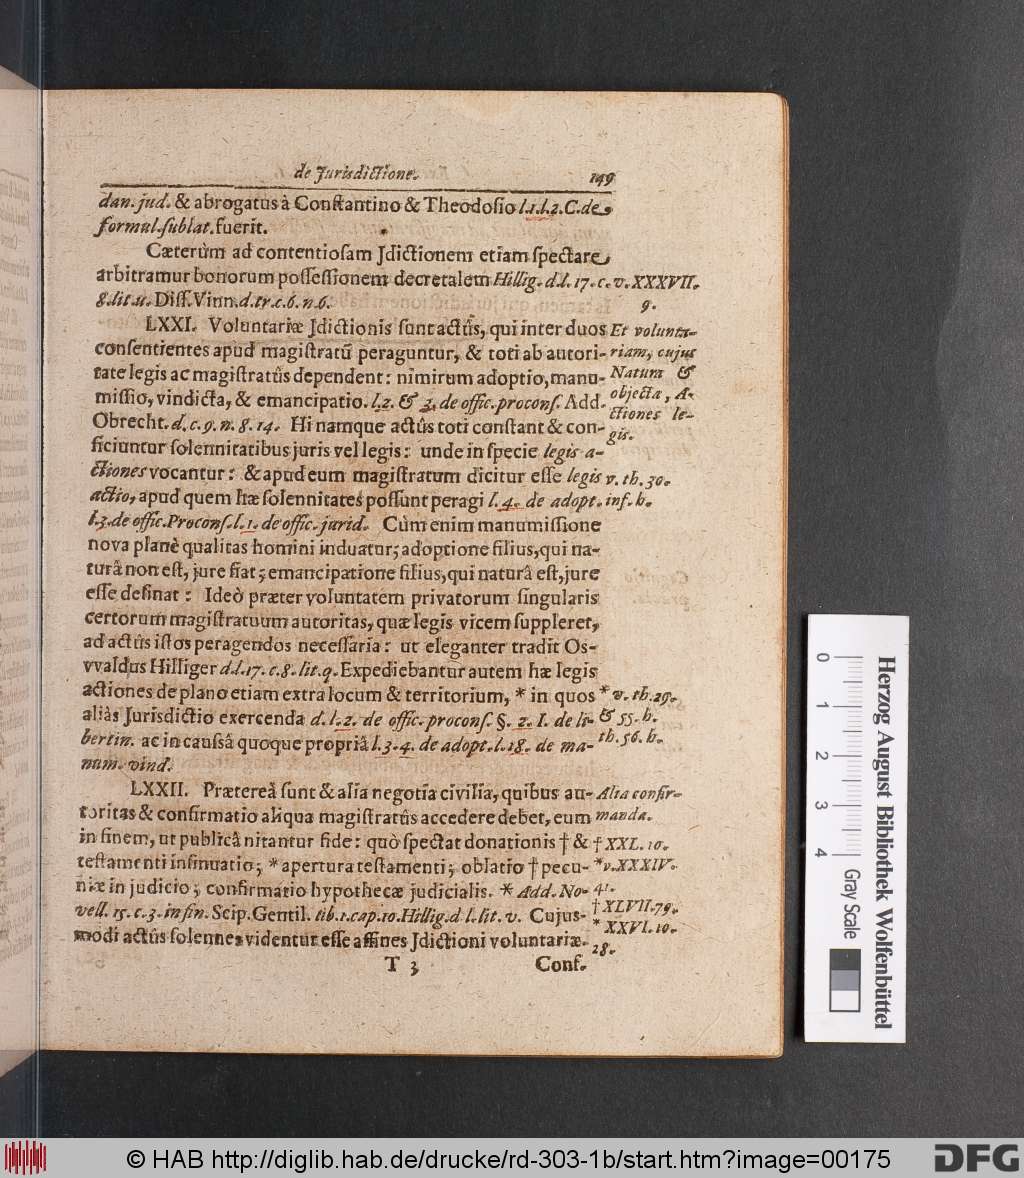 de Jurisdictione. 149
dan. jud. & abrogatus à Constantino & Theodosio l.1.l.2.C.de
formul. sublat. fuerit.
Cæterùm ad contentiosam Jdictionem etiam spectare
arbitramur bonorum possessionem decretalem Hillig. d.l. 17. c. v. XXXVII.
8. lit. u. Diss. Vinn. d. tr. c. 6. n. 6. 9.
LXXI. Voluntariæ Jdictionis sunt actûs, qui inter duos Et volunta-
consentientes apud magistratũ peraguntur, & toti ab autori- riam, cujus
tate legis ac magistratûs dependent: nimirum adoptio, manu- Natura &
missio, vindicta, & emancipatio. l.2. & 3. de offic. procons. Add. objecta, A-
Obrecht. d. c. 9. n. 8. 14. Hi namque actûs toti constant & con- ctiones le-
ficiuntur solennitatibus juris vel legis: unde in specie legis a- gis.
ctiones vocantur: & apud eum magistratum dicitur esse legis v. th. 30.
actio, apud quem hæ solennitates possunt peragi l. 4. de adopt. inf. h.
l.3. de offic. Procons. l. 1. de offic. jurid. Cùm enim manumissione
nova planè qualitas homini induatur; adoptione filius, qui na-
turâ non est, jure fiat; emancipatione filius, qui naturâ est, jure
esse desinat: Ideò præter voluntatem privatorum singularis
certorum magistratuum autoritas, quæ legis vicem suppleret,
ad actûs istos peragendos necessaria: ut eleganter tradit Os-
vvaldus Hilliger d.l. 17. c. 8. lit. q. Expediebantur autem hæ legis
actiones de plano etiam extra locum & territorium, * in quos * v. th. 29.
aliàs Jurisdictio exercenda d. l. 2. de offic. procons. §. 2. I. de li- & 55. h.
bertin. ac in caussâ quoque propriâ l. 3. 4. de adopt. l. 18. de ma- th. 56. h.
num. vind.
LXXII. Prætereà sunt & alia negotia civilia, quibus au- Alia confir-
toritas & confirmatio aliqua magistratûs accedere debet, eum manda.
in finem, ut publicâ nitantur fide: quò spectat donationis † & † XXL. 10.
testamenti insinuatio; * apertura testamenti; oblatio † pecu- * v. XXXIV.
niæ in judicio; confirmatio hypothecæ judicialis. * Add. No- 41.
vell. 15. c. 3. in fin. Scip. Gentil. lib. 1. cap. 10. Hillig. d l. lit. v. Cujus- † XLVII. 79.
modi actûs solennes videntur esse affines Jdictioni voluntariæ. * XXVI. 10.
28.
T 3 Conf.
0 1 2 3 4
Herzog August Bibliothek Wolfenbüttel
Gray Scale
© HAB http://diglib.hab.de/drucke/rd-303-1b/start.htm?image=00175
DFG